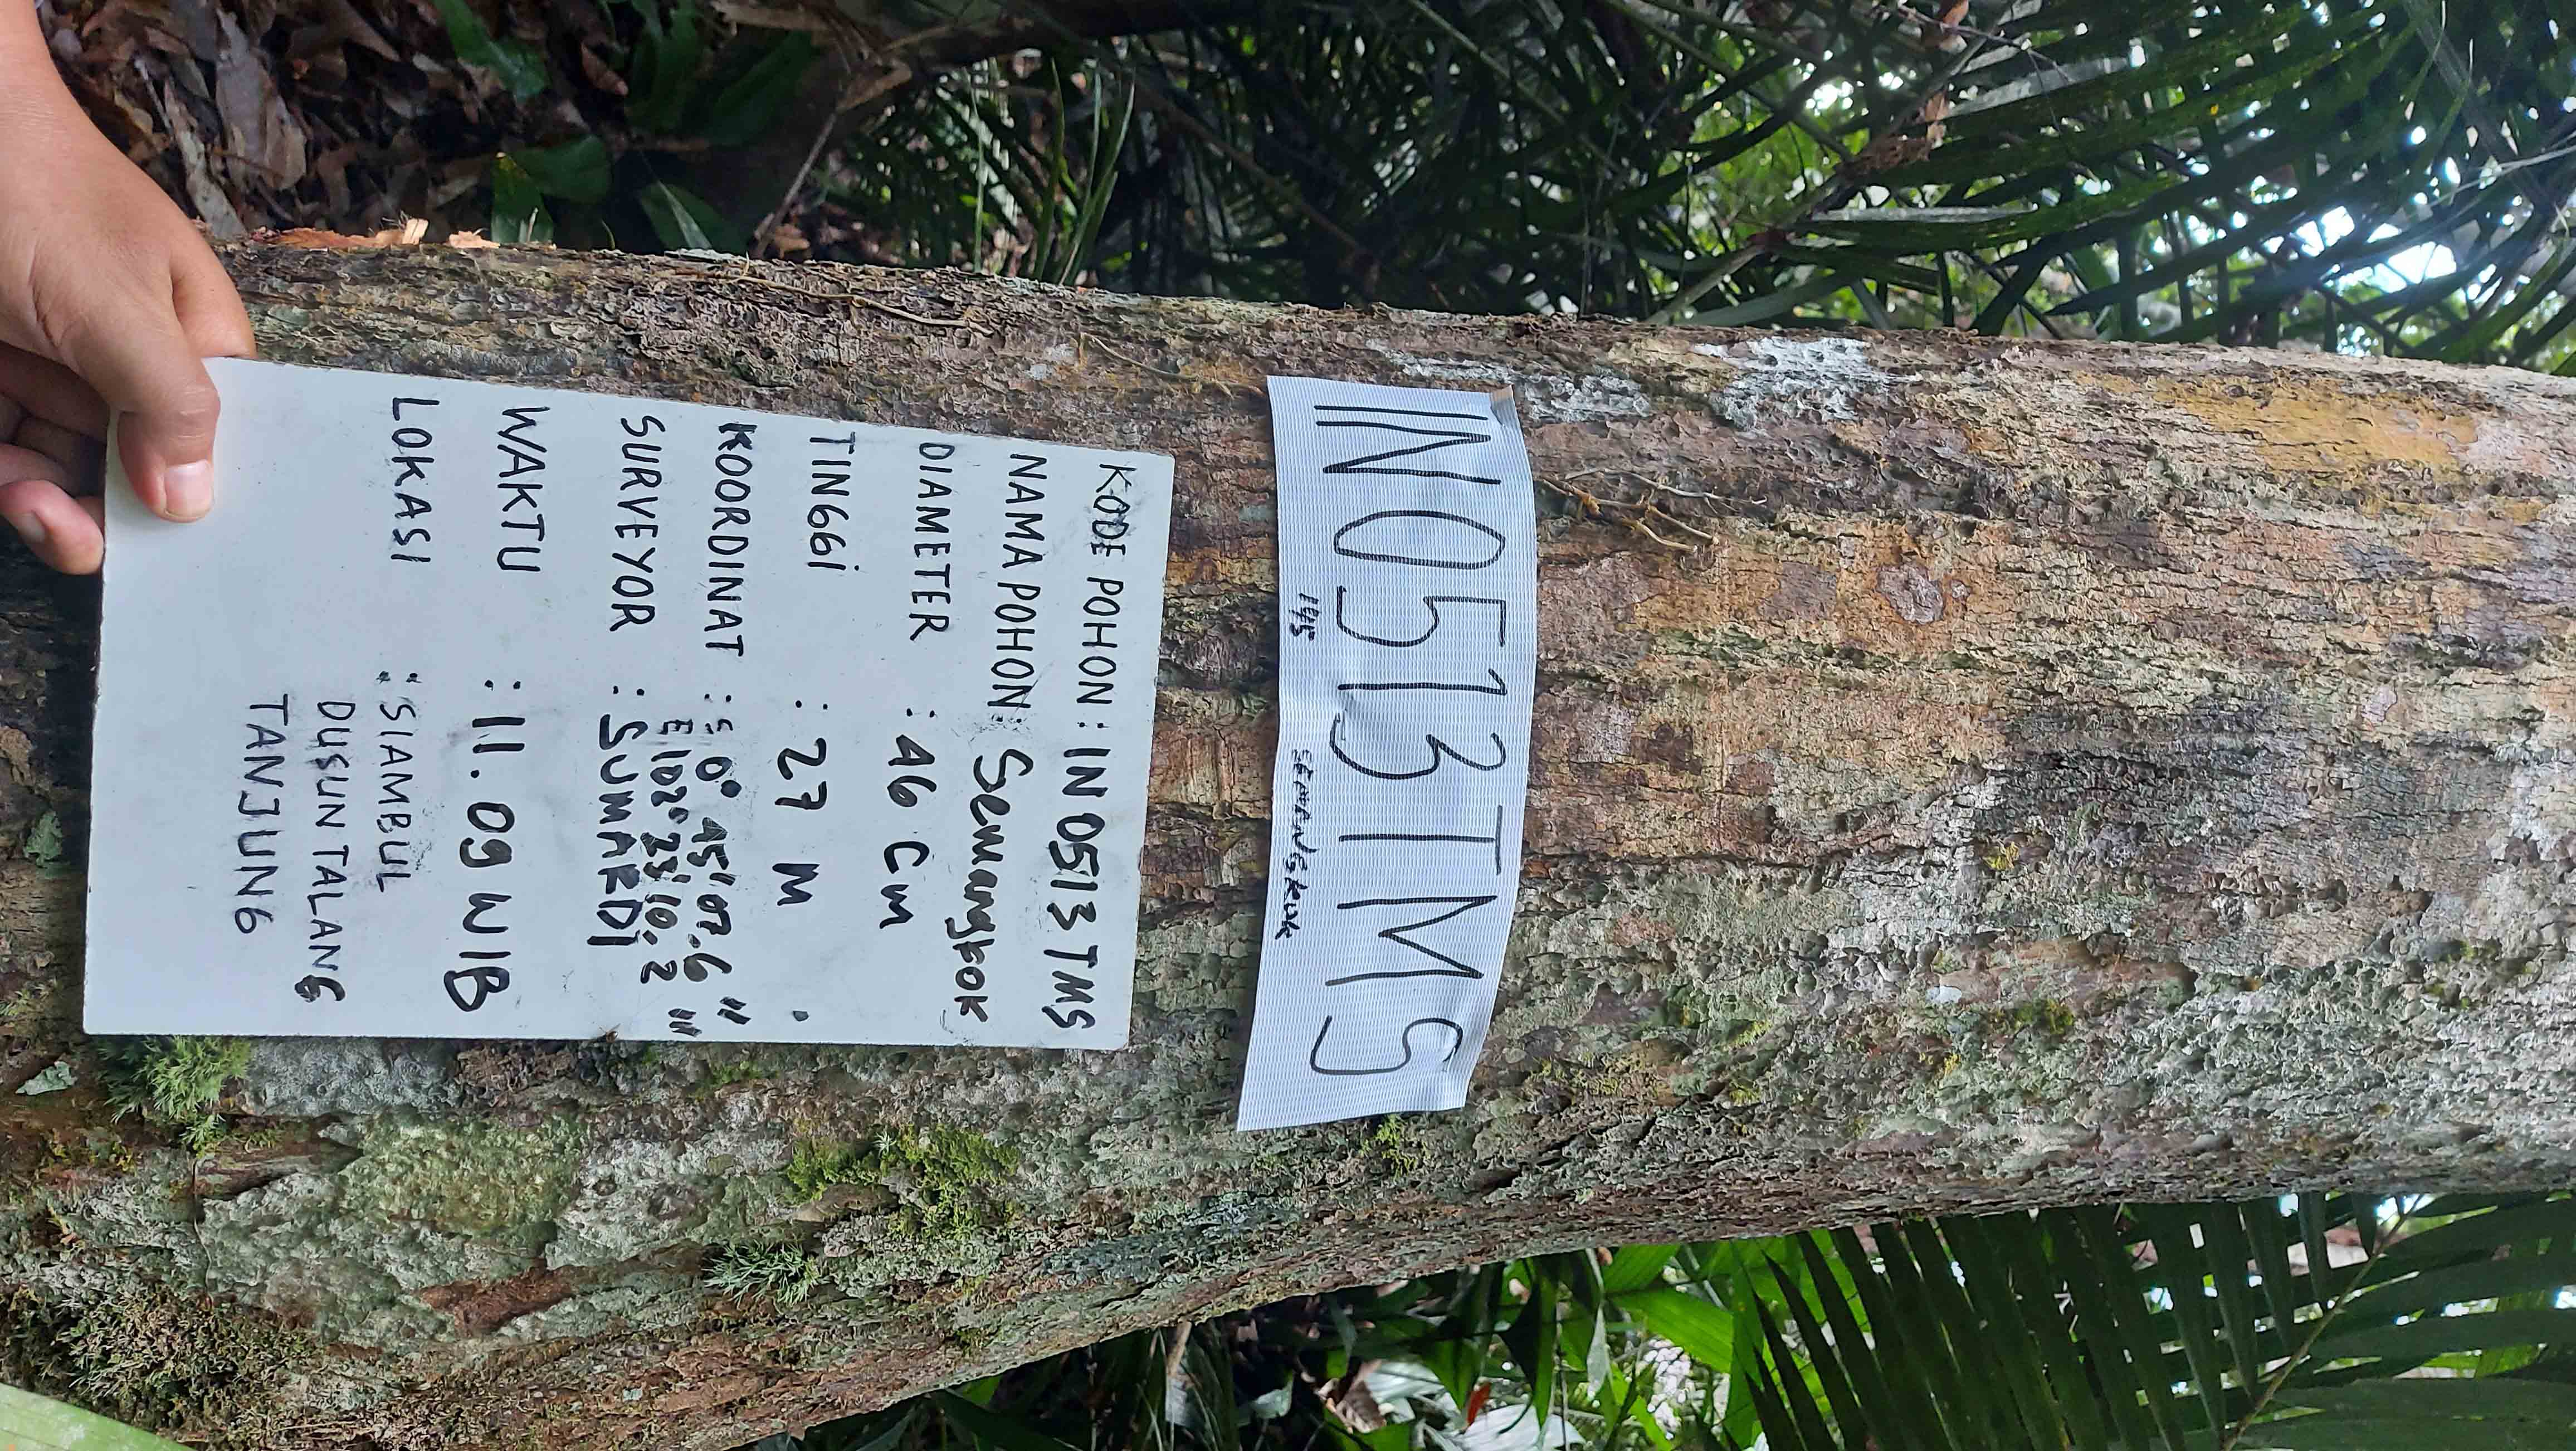 IN0513TMS
145 SEMANGKOK
KODE POHON : IN 0513 TMS
NAMA POHON: Semangkok
DIAMETER : 46 Cm
TINGGi : 27 M
KOORDINAT : S 0° 45' 07.6 "
E 102° 23' 10.2 "
SURVEYOR : SUMARDi
WAKTU : 11.09 WIB
LOKASI : SIAMBUL
DUSUN TALANG
TANJUNG